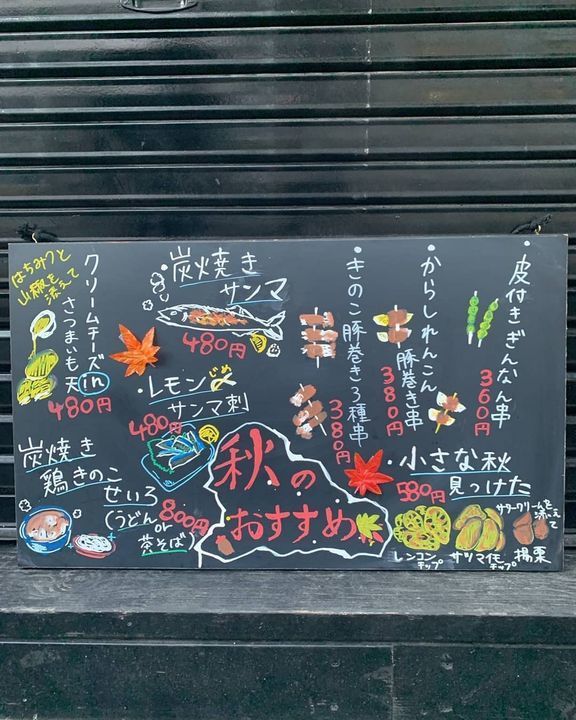 秋の
おすすめ
・皮付きぎんなん串
360円
・からしれんこん
豚巻き串
380円
・きのこ豚巻き3種串
380円
・炭火焼き
サンマ
480円
・レモン〆
じめ
サンマ刺
480円
クリームチーズin
さつまいも天
480円
はちみつと
山椒を添えて
・小さな秋
見っけた
580円
レンコン
チップ
サツマ芋
チップ
サワークリームを
添えて
揚栗
炭焼き
鶏きのこ
せいろ
800円
(うどん
or
茶そば)